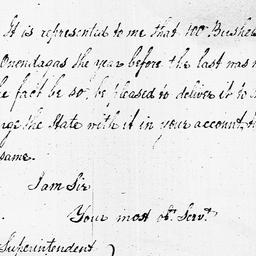 It is represented to me that 100 Bushels
Onondagas the year before the last was n
he fact be so, be pleased to deliver it to
rge the State with it in your account, t
same.
I am Sir
Your most obt. Servt.
Superintendent )